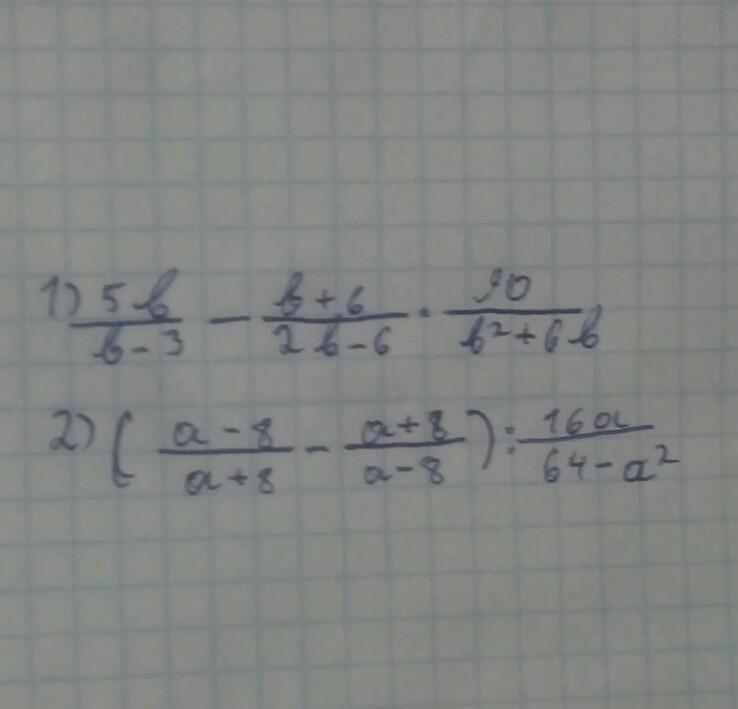 1) 5b/(b-3) - (b+6)/(2b-6) · 90/(b²+6b)
2) ((a-8)/(a+8) - (a+8)/(a-8)) : 16a/(64-a²)